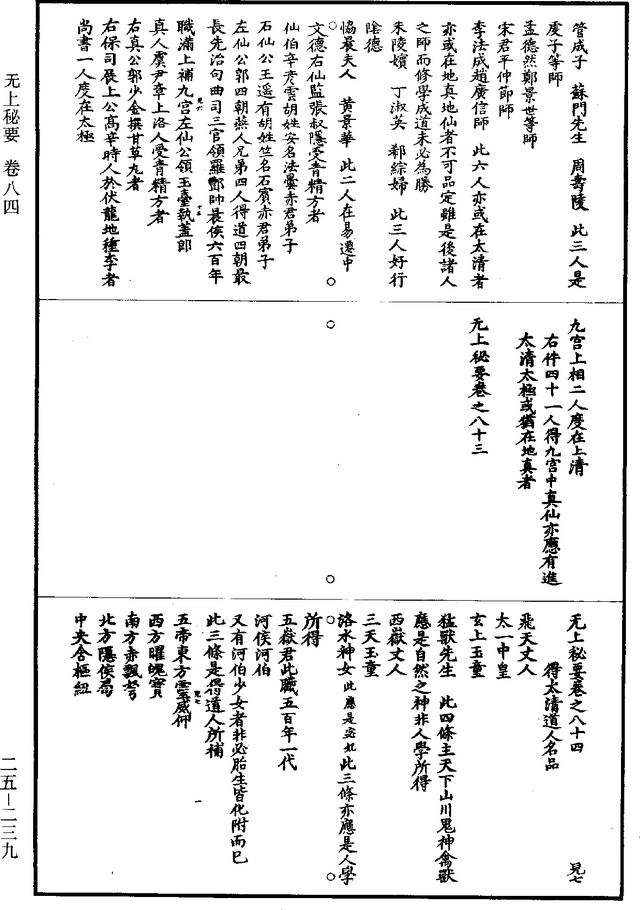 无上秘要 卷八四
二五—二三九
管成子 蘇門先生 周壽陵 此三人是
虔子等師
孟德然鄭景世等師
宋君平仲節師
李法成趙廣信師 此六人亦或在太清者
亦或在地真地仙者不可品定雖是後諸人
之師而修學成道未必為勝
朱陵嬪 丁淑英 郗綜婦 此三人好行
陰德
協晨夫人 黃景華 此二人在易遷中
文德右仙監張叔隱受青精方者
仙伯辛彥雲胡姓安名法曇赤君弟子
石仙公王遥有胡姓竺名石賓赤君弟子
左仙公郭四朝燕人兄弟四人得道四朝最
長先治句曲司三官領羅酆帥晨侯六百年
職滿上補九宮左仙公領玉臺執蓋郎
真人虞尹章上洛人受青精方者
右真公郭少金撰甘草丸者
右保司展上公高辛時人於伏龍地種李者
尚書一人度在太極
九宮上相二人度在上清
右件四十一人得九宮中真仙亦應有進
太清太極或猶在地真者
无上秘要卷之八十三
无上秘要卷之八十四 見七
得太清道人名品
飛天丈人
太一中皇
玄上玉童
猛獸先生 此四條主天下山川鬼神禽獸
應是自然之神非人學所得
西嶽丈人
三天玉童
洛水神女此應是宓妃此三條亦應是人學
所得
五嶽君此職五百年一代
河侯河伯
又有河伯少女者非必胎生皆化附而已
此三條是得道人所補
五帝東方靈威仰
西方曜魄寶
南方赤飄弩
北方隱侯局
中央含樞紐